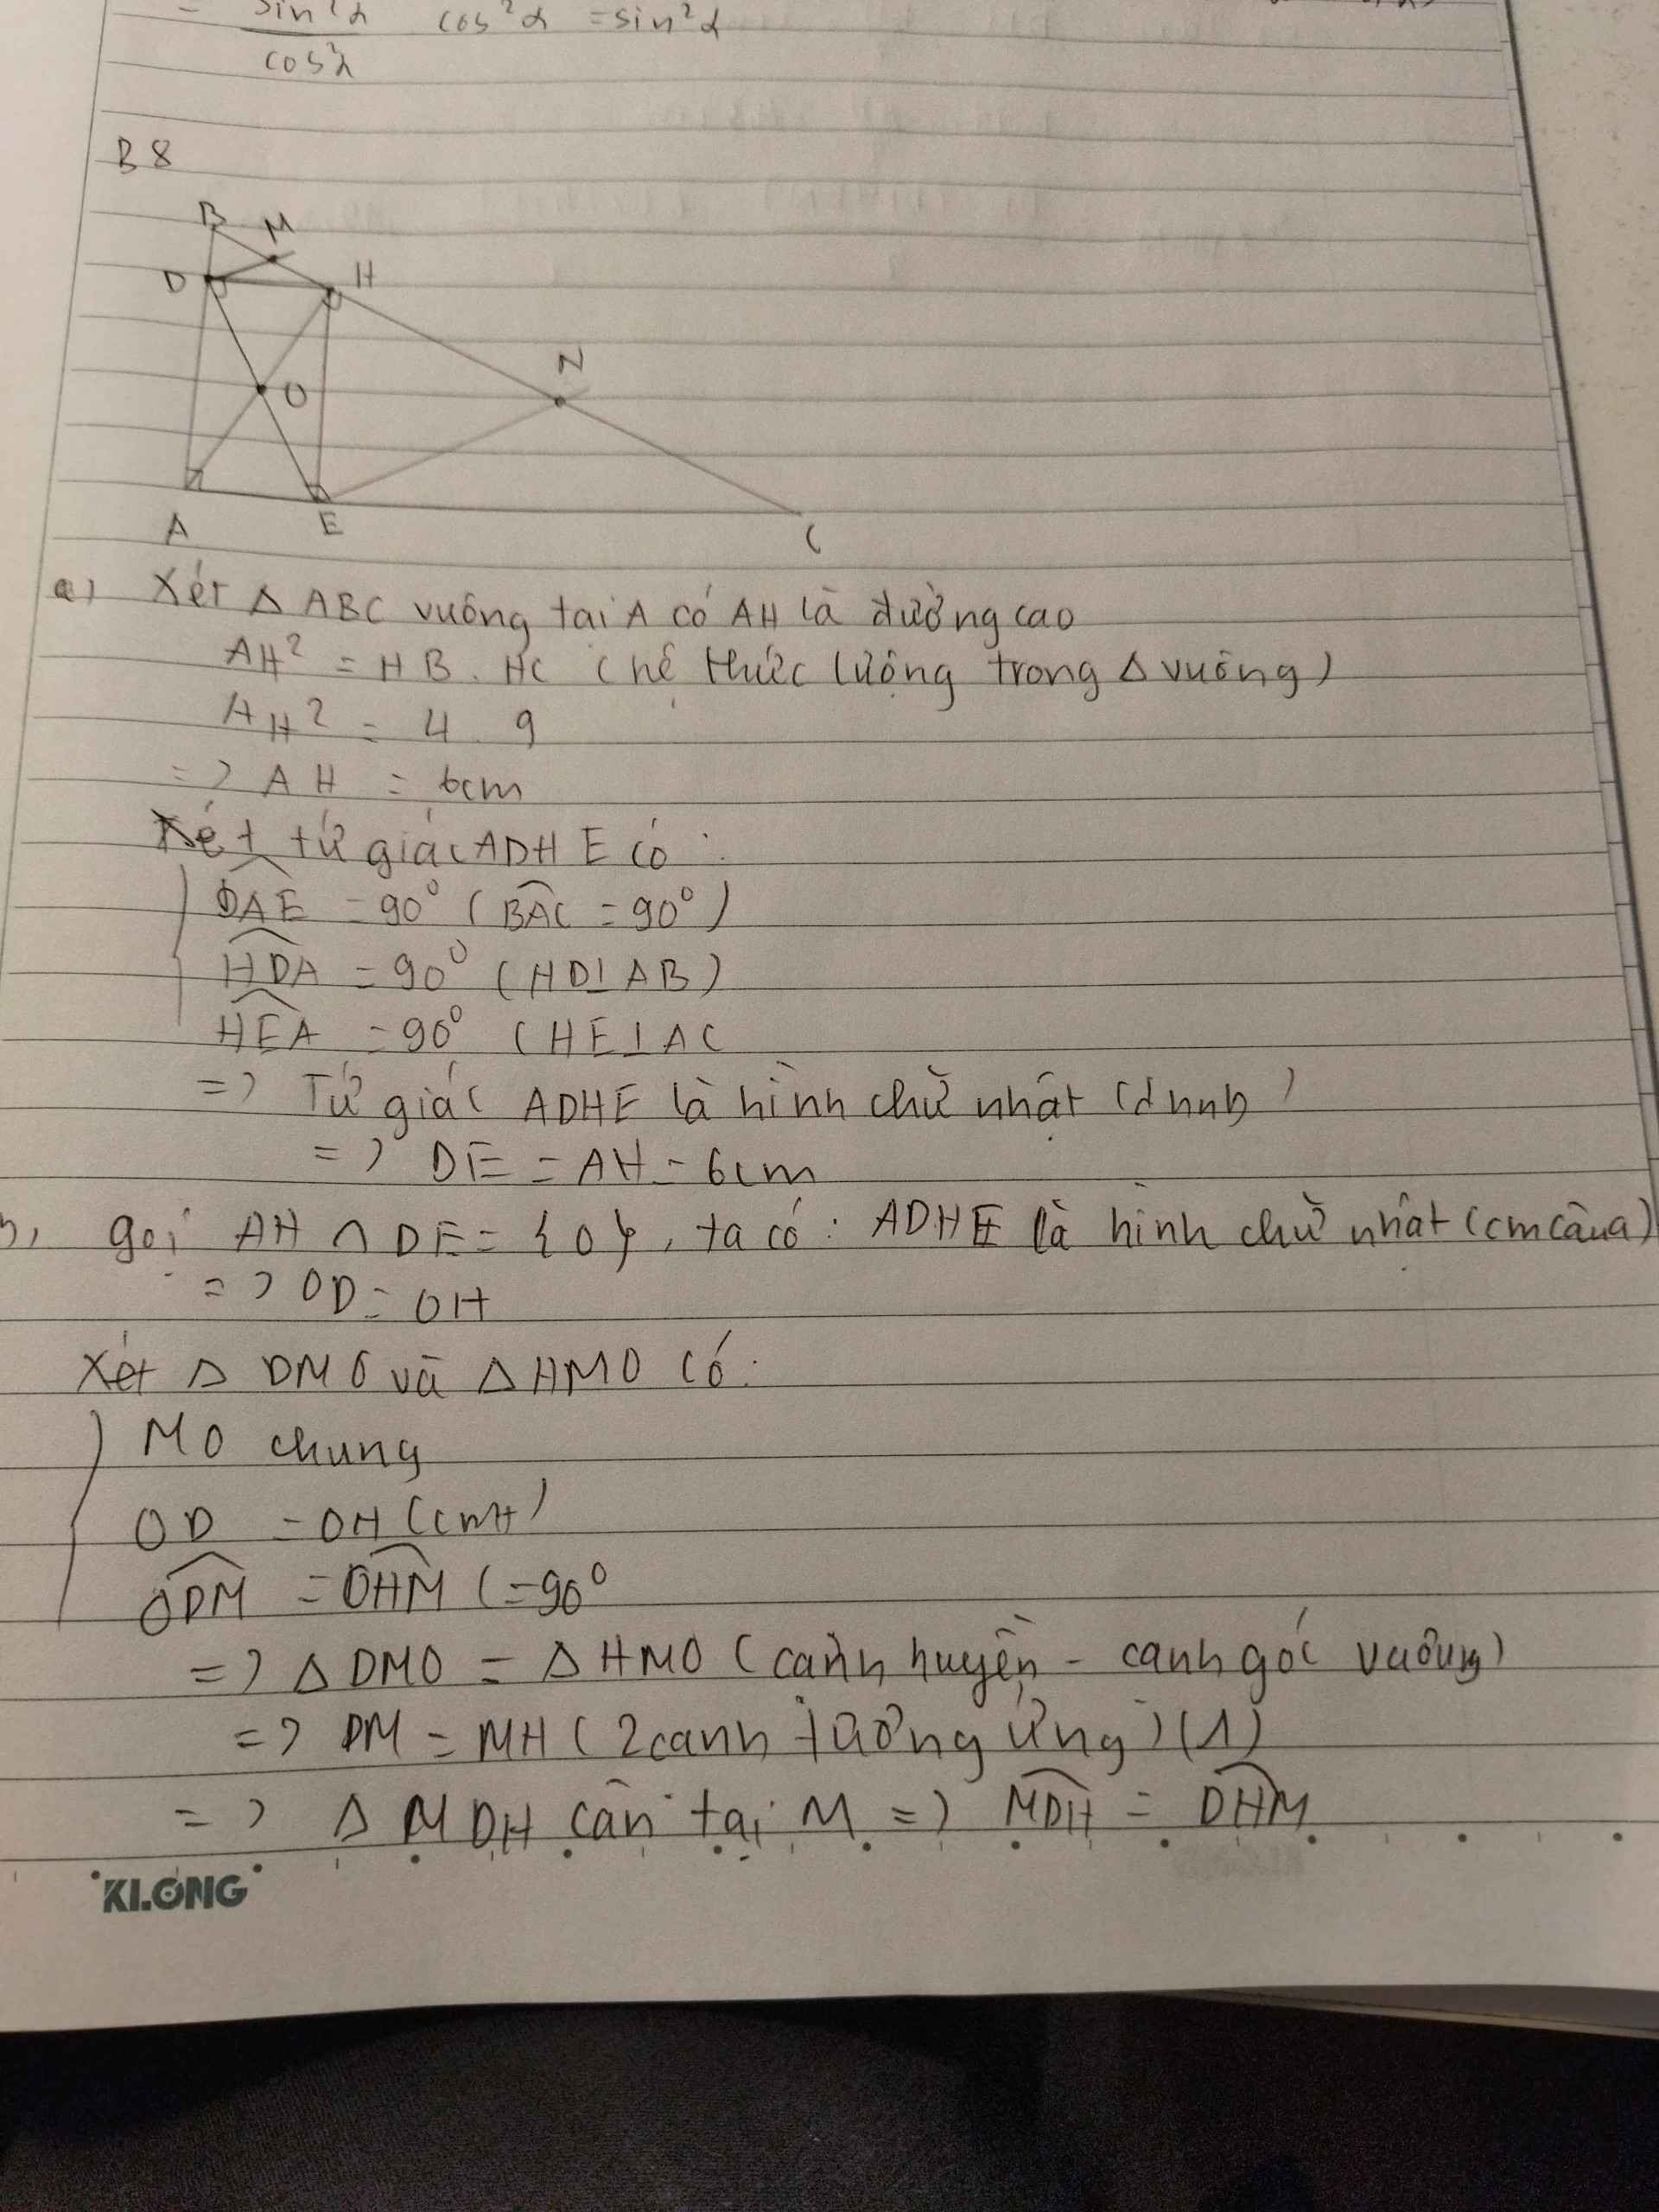 = sin²α cos²α = sin²α
cos²α
B8
B
M
D
H
N
O
A
E
C
a) Xét Δ ABC vuông tại A có AH là đường cao
AH² = HB . HC (hệ thức lượng trong Δ vuông)
AH² = 4 . 9
=> AH = 6cm
Xét tứ giác ADHE có :
DAE = 90° (BAC = 90°)
HDA = 90° (HD⊥AB)
HEA = 90° (HE⊥AC
=> Tứ giác ADHE là hình chữ nhật (dhnb)
=> DE = AH = 6cm
b, gọi AH ∩ DE = {O}, ta có : ADHE là hình chữ nhật (cm câu a)
=> OD = OH
Xét Δ DMO và Δ HMO có :
MO chung
OD = OH (cmt)
ODM = OHM (=90°
=> Δ DMO = Δ HMO (cạnh huyền - cạnh góc vuông)
=> DM = MH (2 cạnh tương ứng) (1)
=> Δ MDH cân tại M => MDH = DHM
KLONG